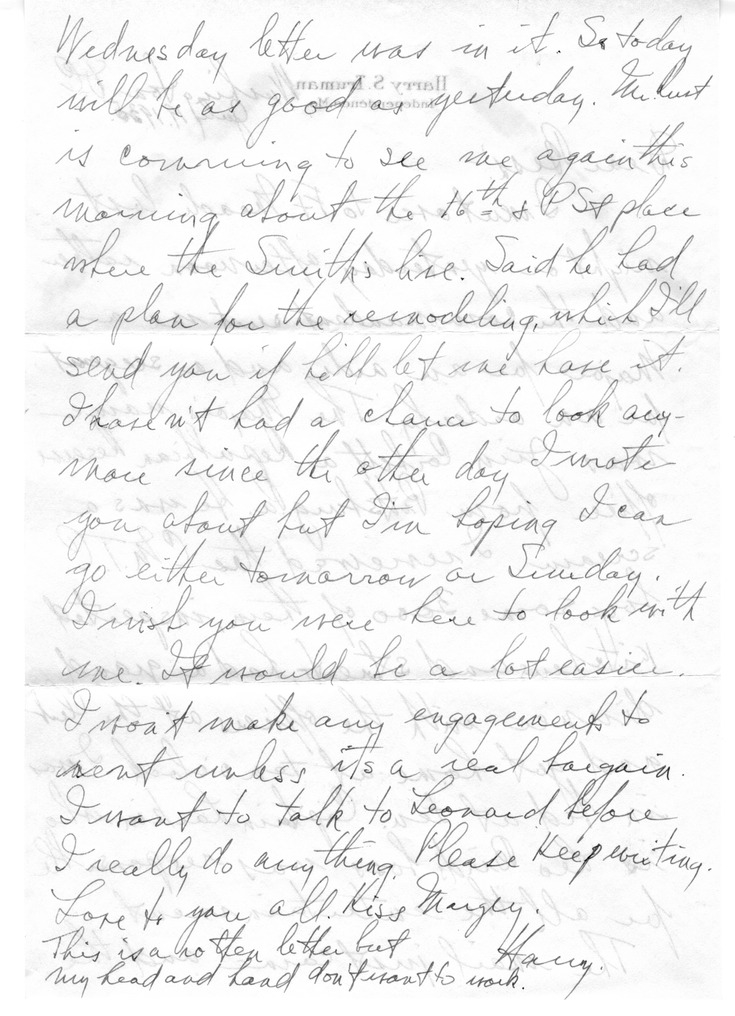 Wednesday letter was in it. So today
will be as good as yesterday. Mr.
is comming to see me again this
morning about the 16th & P St place
where the Smiths live. Said he had
a plan for the remodeling, which I'll
send you if he'll let me have it.
I haven't had a chance to look any-
more since the other day I wrote
you about but I'm hoping I can
go either tomorrow or Sunday.
I wish you were here to look with
me. It would be a lot easier.
I won't make any engagements to
rent unless its a real bargain.
I want to talk to Leonard before
I really do anything. Please Keep writing.
Love to you all. Kiss Margey.
Harry.
This is a rotten letter but
my head and hand don't want to work.